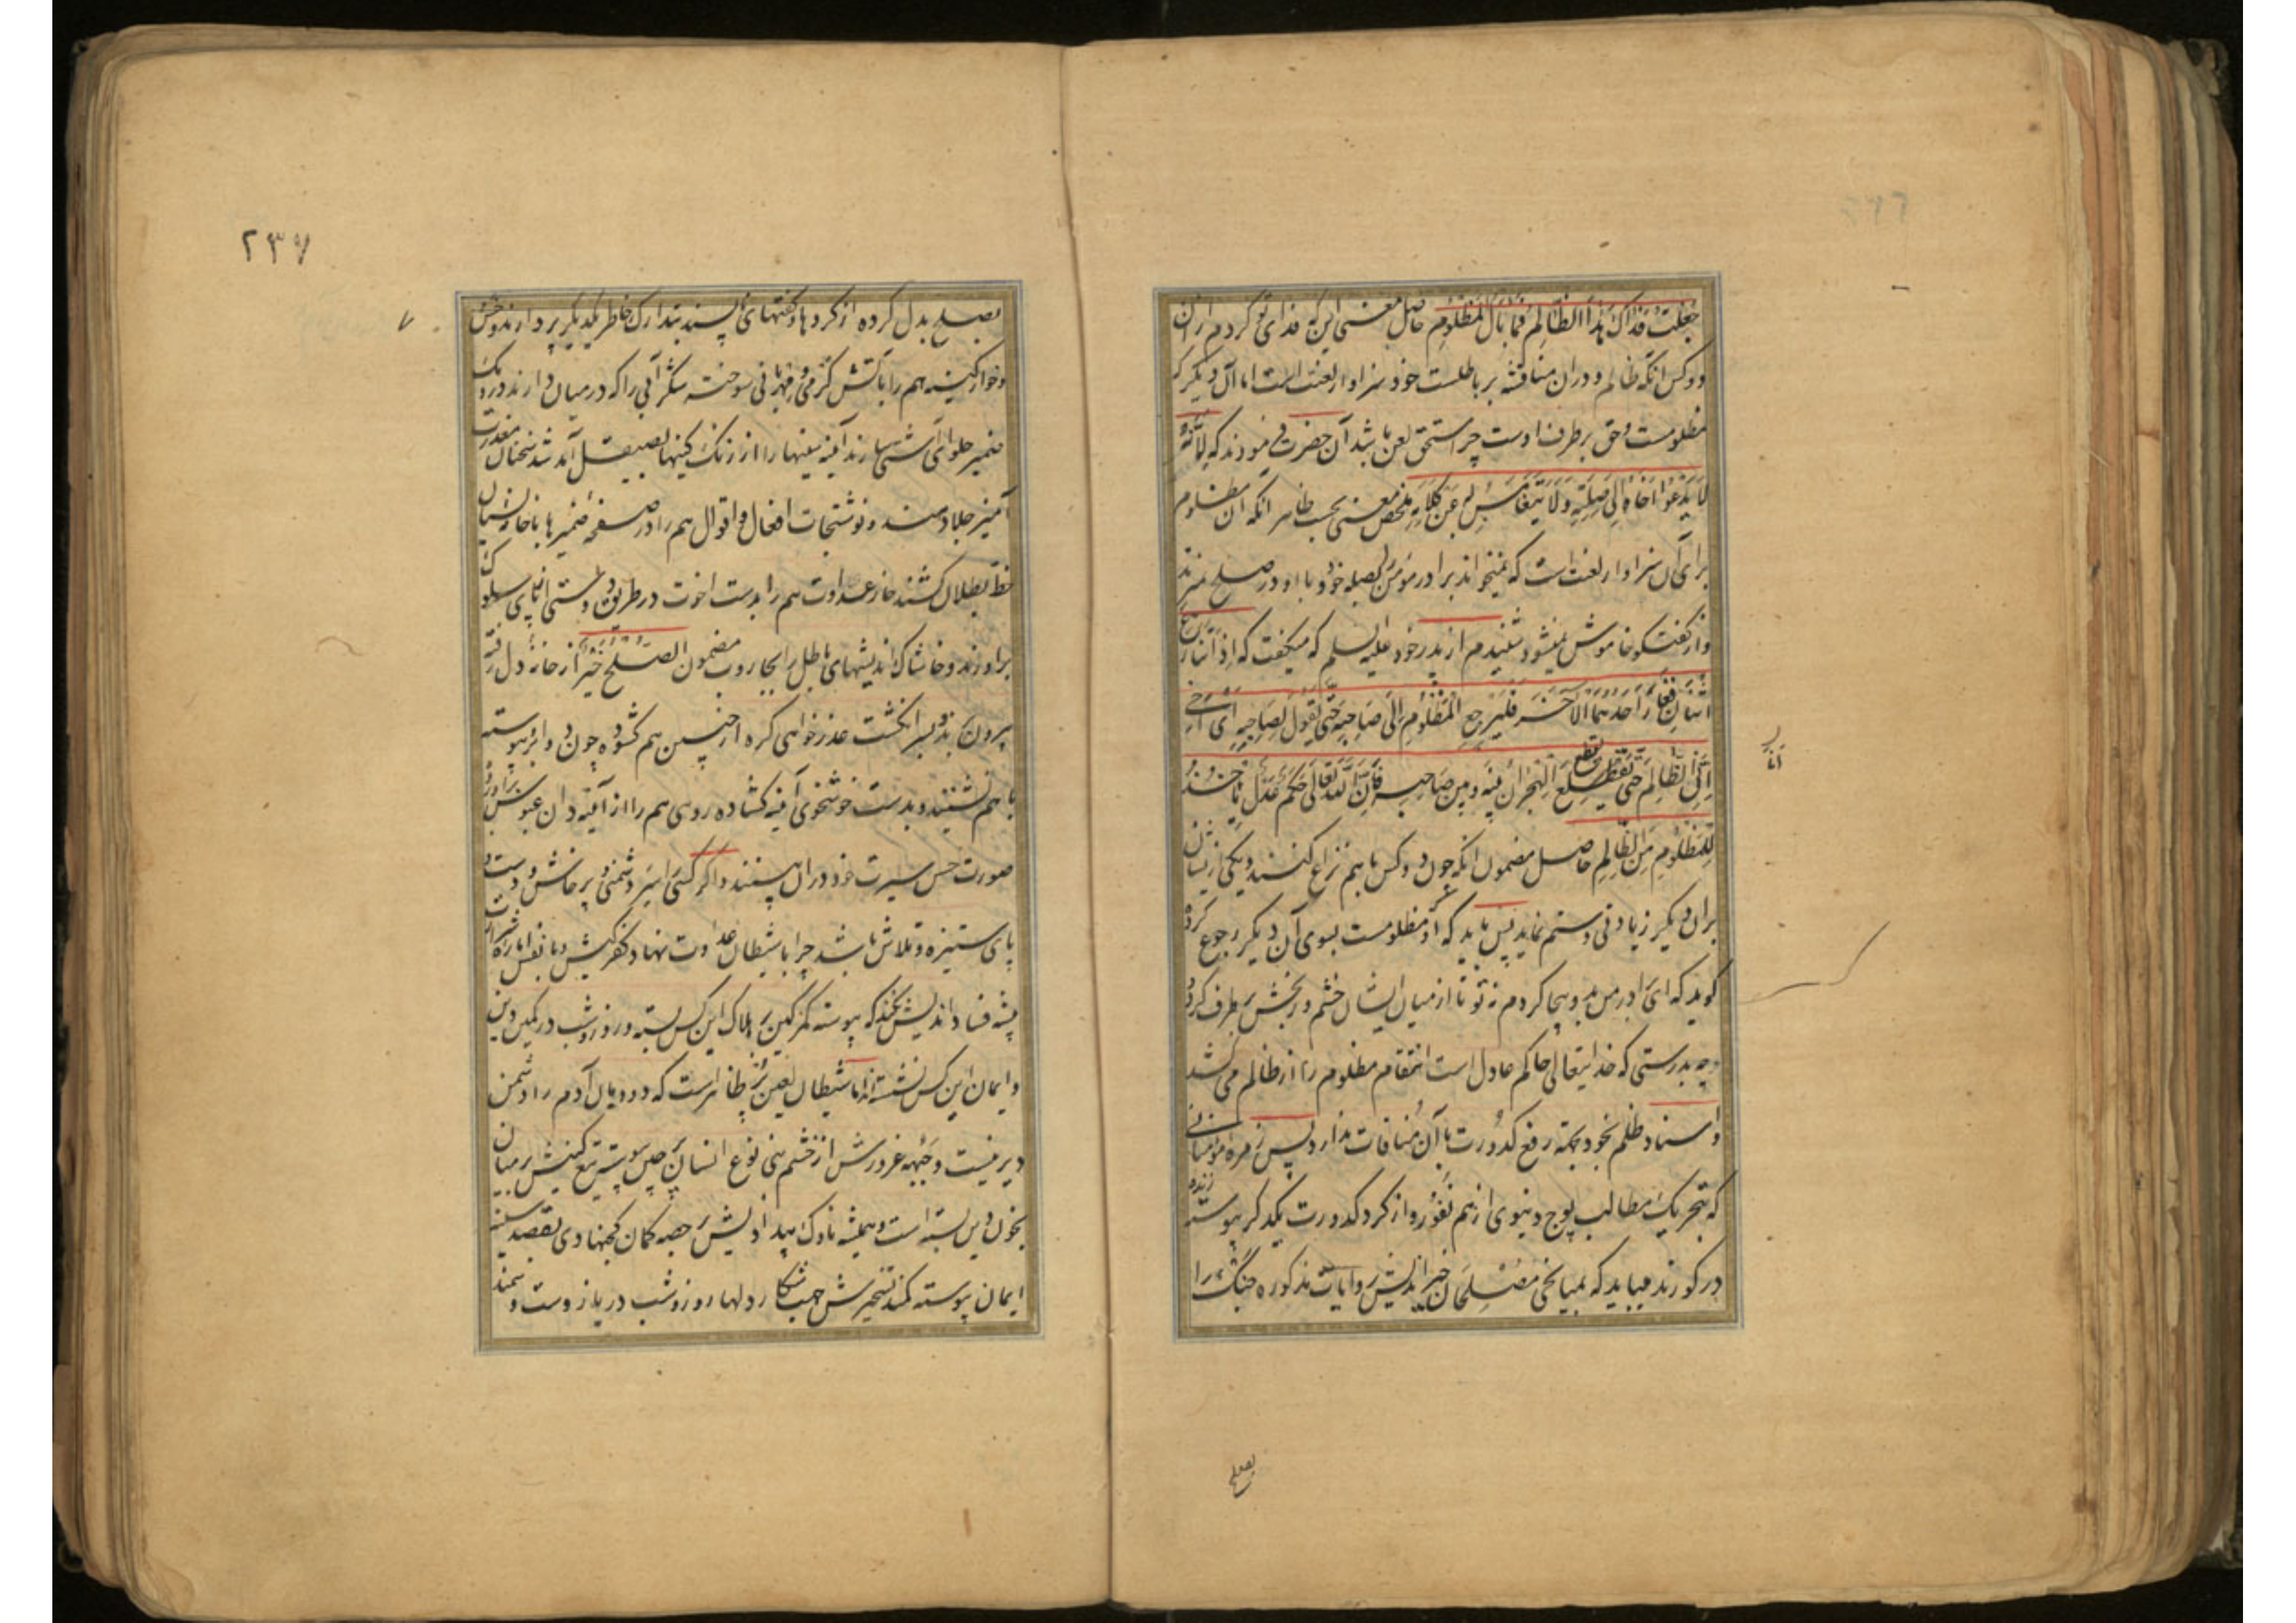 جُعِلْتُ فِدَاكَ هٰذَا الظَّالِمُ فَمَا بَالُ الْمَظْلُومِ حاصل معنی اینکه فدای تو کردم ازان
دو کس آنکه ظالم و دران مناقشه بر باطلست خود سزاوار لعنت است اما آن دیگر که
مظلومست و حق بر طرف اوست چرا مستحق لعن باشد آن حضرت فرمودند که لِاَنَّهُ
لَا یَدْعُوا اَخَاهُ اِلٰی صِلَتِهِ وَلَا یَتَغَامَسُ لَهُ عَنْ کَلَامِهِ ملخص معنی بحسب ظاهر آنکه آن مظلوم
برای آن سزاوار لعنت است که نمیخواند برادر مؤمن بصله خود و با او در صلح نمیزند
و از گفتگو خاموش نمیشود شنیدم از پدر خود علیه السلم که میگفت که اِذَا تَنَازَعَ
اثْنَانِ فَعَازَّ اَحَدُهُمَا الْآخَرَ فَلْیَرْجِعِ الْمَظْلُومُ اِلٰی صَاحِبِهِ حَتّٰی یَقُولَ لِصَاحِبِهِ اَیْ اَخِی
اَنَا الظَّالِمُ حَتّٰی یَقْطَعَ الْهِجْرَانَ بَیْنَهُ وَبَیْنَ صَاحِبِهِ فَاِنَّ اللّٰهَ تَعَالٰی حَکَمٌ عَدْلٌ یَأْخُذُ
لِلْمَظْلُومِ مِنَ الظَّالِمِ حاصل مضمون آنکه چون دو کس با هم نزاع کنند و یکی ازیشان
بران دیگر زیادتی و ستم نماید پس باید که آن مظلومست بسوی آن دیگر رجوع کرده
گوید که ای برادر من بد و بیجا کردم نه تو تا از میان ایشان خشم و رنجش برطرف گردد
چه بدرستی که خدایتعالی حاکم عادل است انتقام مظلوم را از ظالم می کشد
و اسناد ظلم بخود بجهة رفع کدورت با آن منافات ندارد پس زمره مؤمنانی
که بتحریک مطالب پوچ دنیوی از هم نفور و از گرد کدورت یکدگر پیوسته زنده
در گورند میباید که بمیانجی مصلحان خیراندیش و آیات مذکوره جنگ را
انا
بصلح
۲۳۷
بصلح بدل کرده از کردها و گفتهای ناپسند بتدارک خاطر یکدیگر پردازند و خس
و خوار کینه هم را بآتش گرمی و مهربانی سوخته شکرآبی را که در میان دارند در دیک
ضمیر حلوای آشتی سازند آینه سینها را از زنک کینها بصیقل آمد شد سخنان معذرت
آمیز جلا دهند و نوشتجات افعال و اقوال هم را در صفحه ضمیرها بناخن نسیان
خط بطلان کشند خار عداوت هم را بدست اخوت در طریق دوستی از پای سلوک
براورند و خاشاک اندیشهای باطل را بجاروب مضمون الصُّلْحُ خَیْرٌ از خانه دل رفته
بیرون برند بسر انگشت عذرخواهی گره از چین هم گشوده چون دو ابرو پیوسته
با هم نشینند و بدست خوشخوی آینه کشاده روی هم را از آینه دان عبوس براورده
صورت حسن سیرت خود دران بینند و اگر کسی اسیر دشمنی و پرخاش و دست و
پای ستیزه و تلاش باشد چرا با شیطان عداوت نهاد کفر کیش و با نفس اماره شرارت
پیشه فساد اندیش نکند که پیوسته کمر کین بر هلاک این کس بسته و روز و شب در کمین دین
و ایمان این کس نشسته اند اما شیطان لعین پر ظاهرست که دودمان آدم را دشمن
دیرینست و جبهه غرورش از خشم بنی نوع انسان پر چین پیوسته تیغ کینش بر میان
بخون دین بسته است و همیشه ناوک بیداد کیش بر جعبه کمان کجنهادی بقصد سینه
ایمان پیوسته کمند تسخیرش جهت شکار دلها روز و شب در بازوست و سمند